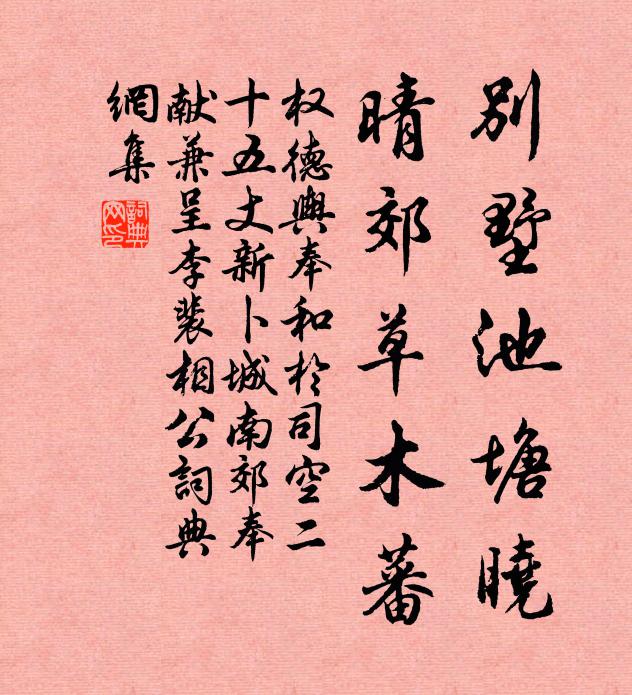 別墅池塘曉
晴郊草木蕃
权德輿奉和於司空二
十五丈新卜城南郊奉
献兼呈李裴相公詞典
網集
詞典
網印